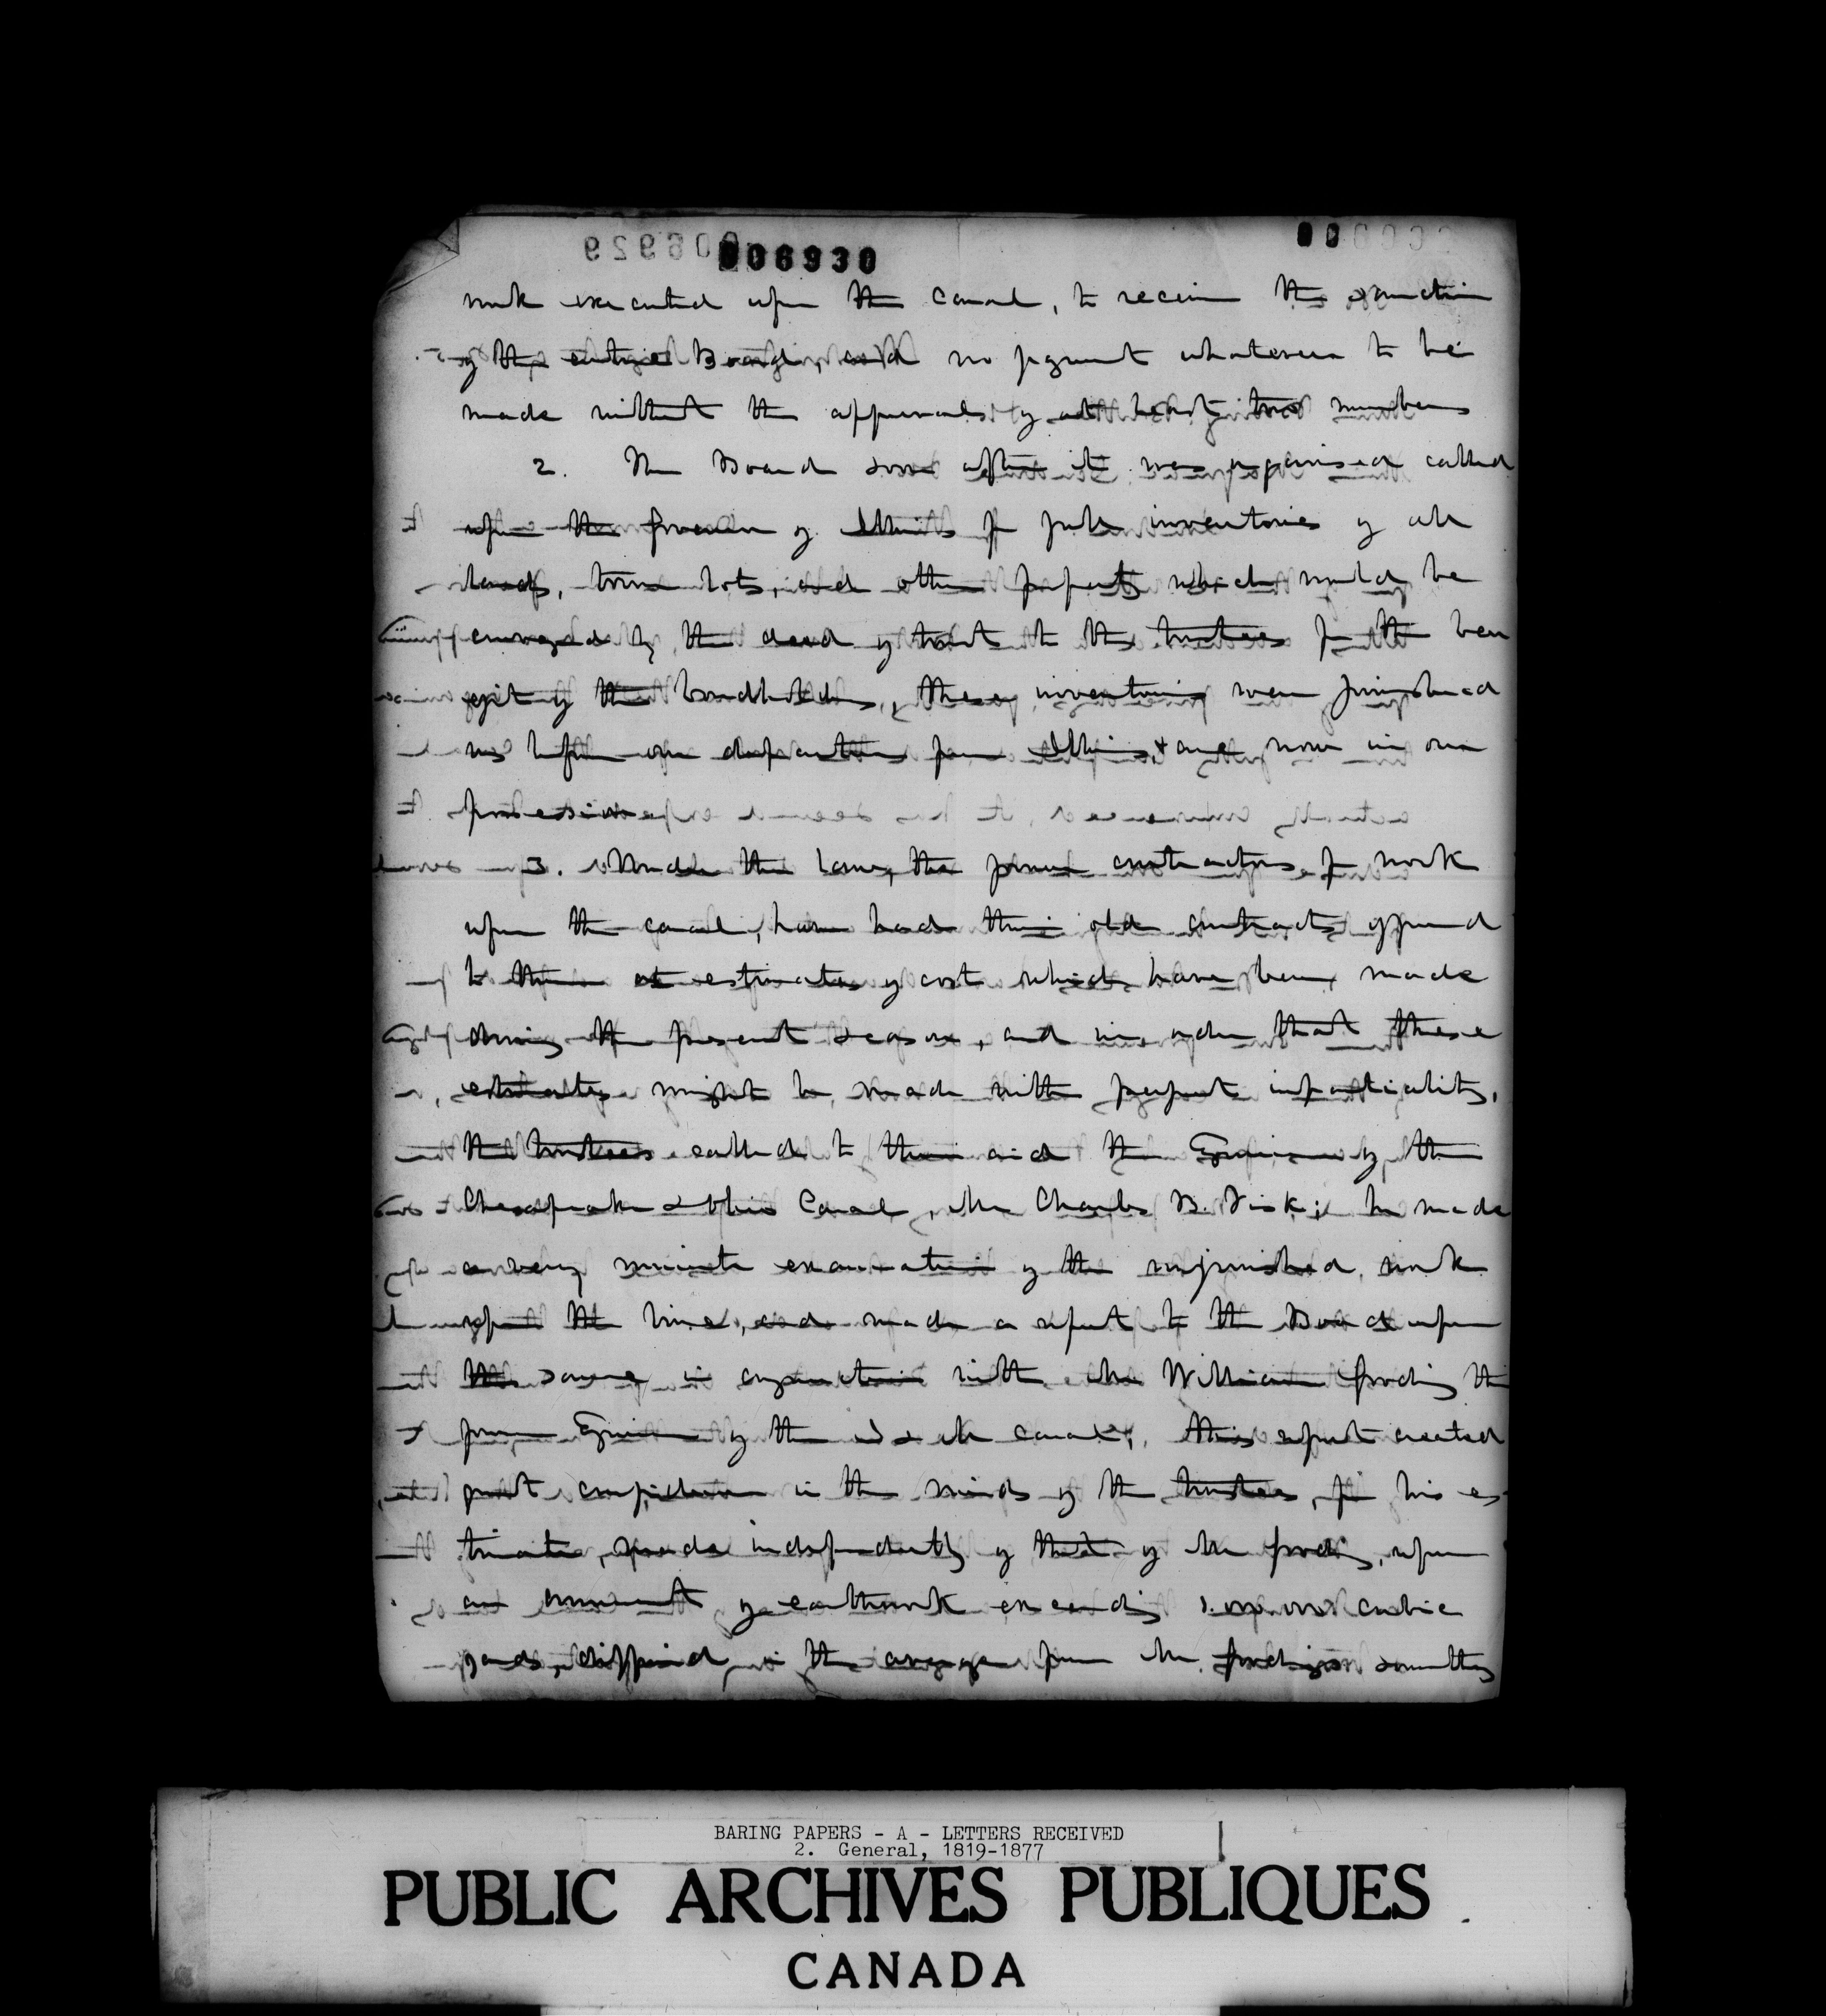 006930
work executed upon the canal, to receive the sanction
of the entire Board, and no payment whatever to be
made without the approval of at least two members
2. The Board soon after it was organised called
upon the Governor of Illinois for full inventories of all
lands, town lots, and other property which would be
conveyed by the deed of trust to the trustees for the ben
efit of the bondholders, these inventories were furnished
us before our departure from Illinois, & are now in our
possession
3. Under the law, the former contractors for work
upon the canal, have had their old contracts offered
to them at estimates of cost which have been made
during the present season, and in order that these
estimates might be made with perfect impartiality,
the trustees called to their aid the Engineer of the
Chesapeake & Ohio Canal, Mr Charles B. Fisk; he made
a very minute examination of the unfinished work
upon the line, and made a report to the Board upon
the same in conjunction with Mr William Gooding the
former Engineer of the I & M canal; this report created
great confidence in the minds of the trustees, for his es
timate, made independently of that of Mr Gooding, upon
an amount of earthwork exceeding cubic
yards, differed in the average from Mr Gooding's something
BARING PAPERS - A - LETTERS RECEIVED
2. General, 1819-1877
PUBLIC ARCHIVES PUBLIQUES
CANADA